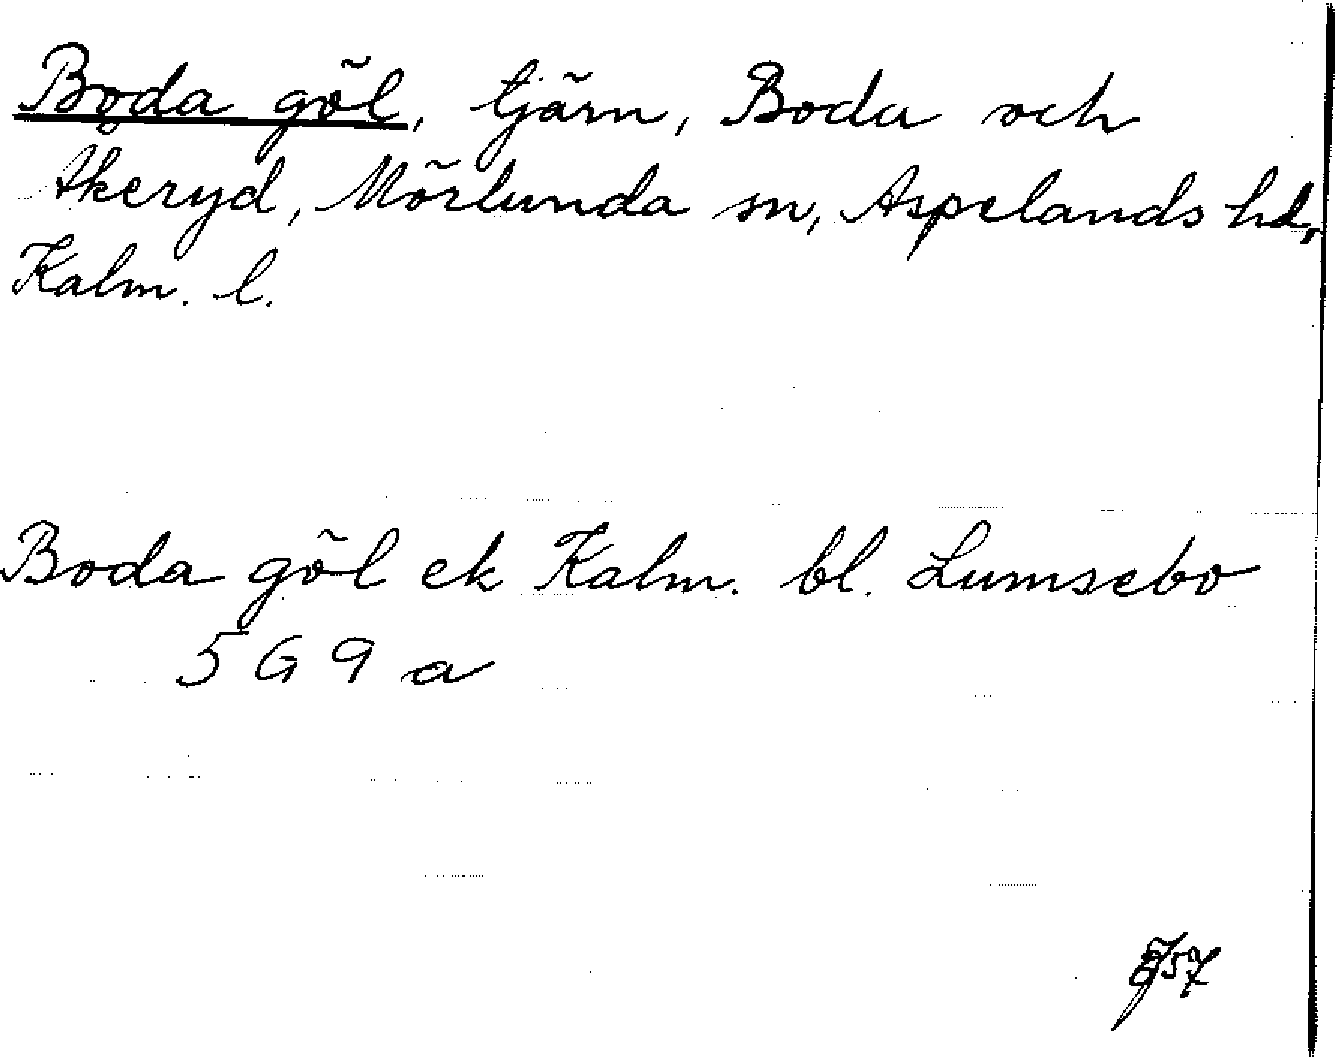 Boda göl, tjärn, Boda och
Åkeryd, Mörlunda sn, Aspelands hd,
Kalm. l.
Boda göl ek Kalm. bl. Lumsebo
5 G 9 a
57